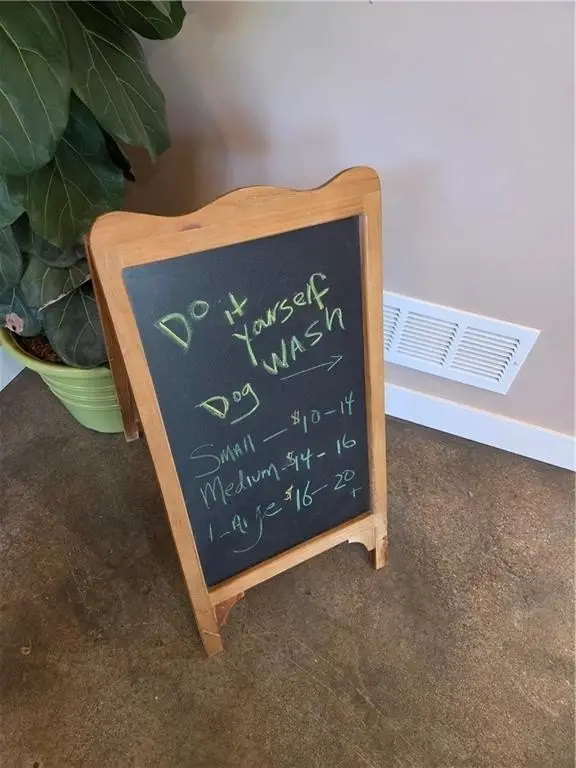 Do it
Yourself
Dog WASh
Small — $10-14
Medium - $14-16
Large $16-20+